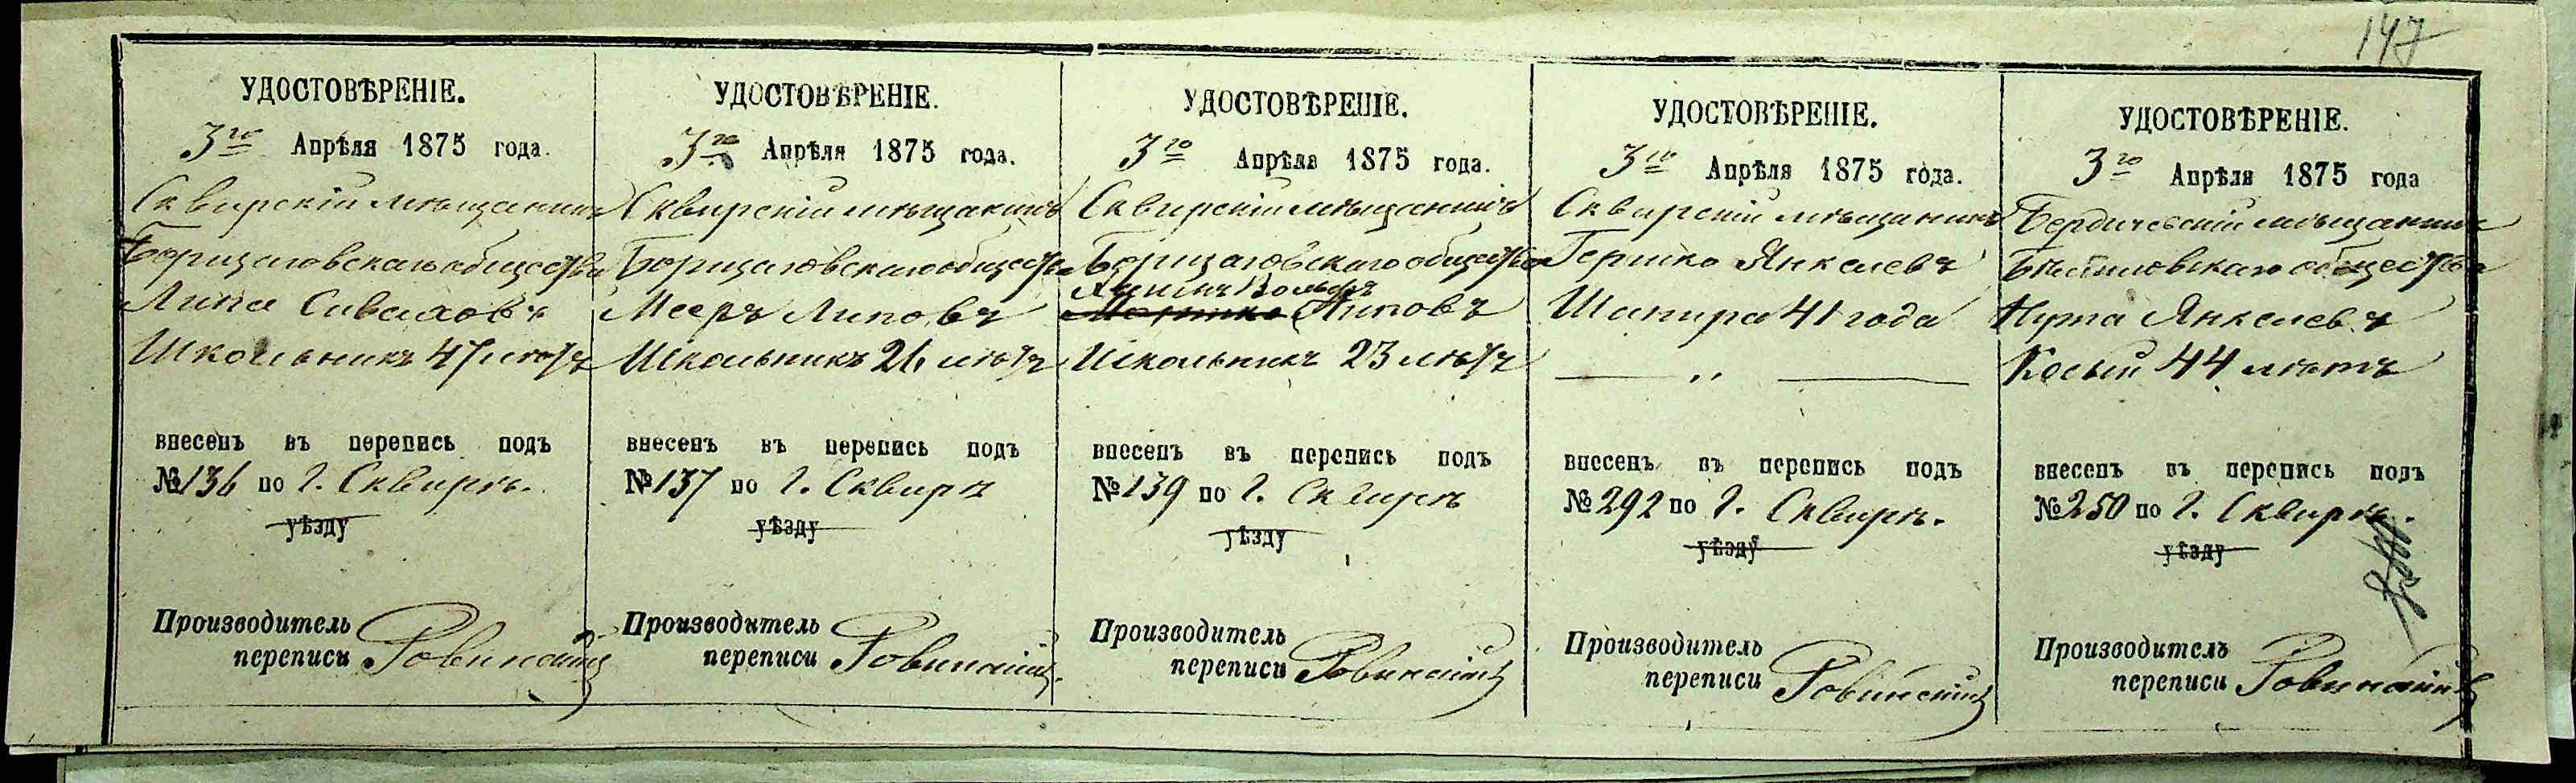 147
УДОСТОВѢРЕНІЕ.
3го Апрѣля 1875 года.
Сквирскій мѣщанинъ
Борщаговскаго общества
Липа Сивахов
Школьникъ 47 лѣтъ
внесенъ въ перепись подъ
№ 136 по г. Сквирѣ.
уѣзду
Производитель
переписи Ровинскій
УДОСТОВѢРЕНІЕ.
3го Апрѣля 1875 года.
Сквирскій мѣщанинъ
Борщаговскаго общества
Мееръ Липовъ
Школьникъ 26 лѣтъ
внесенъ въ перепись подъ
№ 137 по г. Сквирѣ
уѣзду
Производитель
переписи Ровинскій.
УДОСТОВѢРЕНІЕ.
3го Апрѣля 1875 года.
Сквирскій мѣщанинъ
Борщаговскаго общества
Вольфъ
Липовъ
Школьникъ 23 лѣтъ
внесенъ въ перепись подъ
№ 139 по г. Сквирѣ
уѣзду
Производитель
переписи Ровинскій
УДОСТОВѢРЕНІЕ.
3го Апрѣля 1875 года.
Сквирскій мѣщанинъ
Гершко Янкелевъ
Шапира 41 года
— „ —
внесенъ въ перепись подъ
№ 292 по г. Сквирѣ.
уѣзду
Производитель
переписи Ровинскій
УДОСТОВѢРЕНІЕ.
3го Апрѣля 1875 года
Бердичевскій мѣщанинъ
общества
Нута Янкелевъ
Косый 44 лѣтъ
внесенъ въ перепись подъ
№ 250 по г. Сквирѣ.
уѣзду
Производитель
переписи Ровинскій